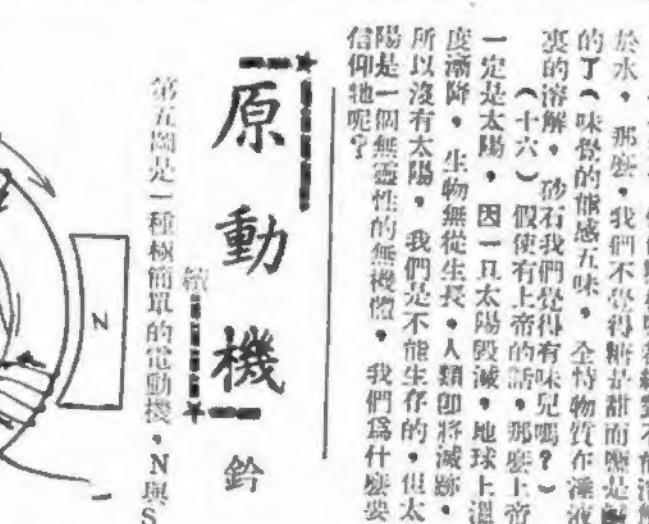 於水,那麽,我們不覺得糖是甜而鹽是
的了(味覺的能感五味,全恃物質在唾液
裏的溶解,砂石我們覺得有味兒嗎?)
(十六)假使有上帝的話,那麽上帝
一定是太陽,因一旦太陽毀滅,地球上溫
度漸降,生物無從生長,人類即將滅跡,
所以沒有太陽,我們是不能生存的,但太
陽是一個無靈性的無機體,我們爲什麽要
信仰牠呢?
原動機
續
鈴
第五圖是一種極簡單的電動機,N與S
N